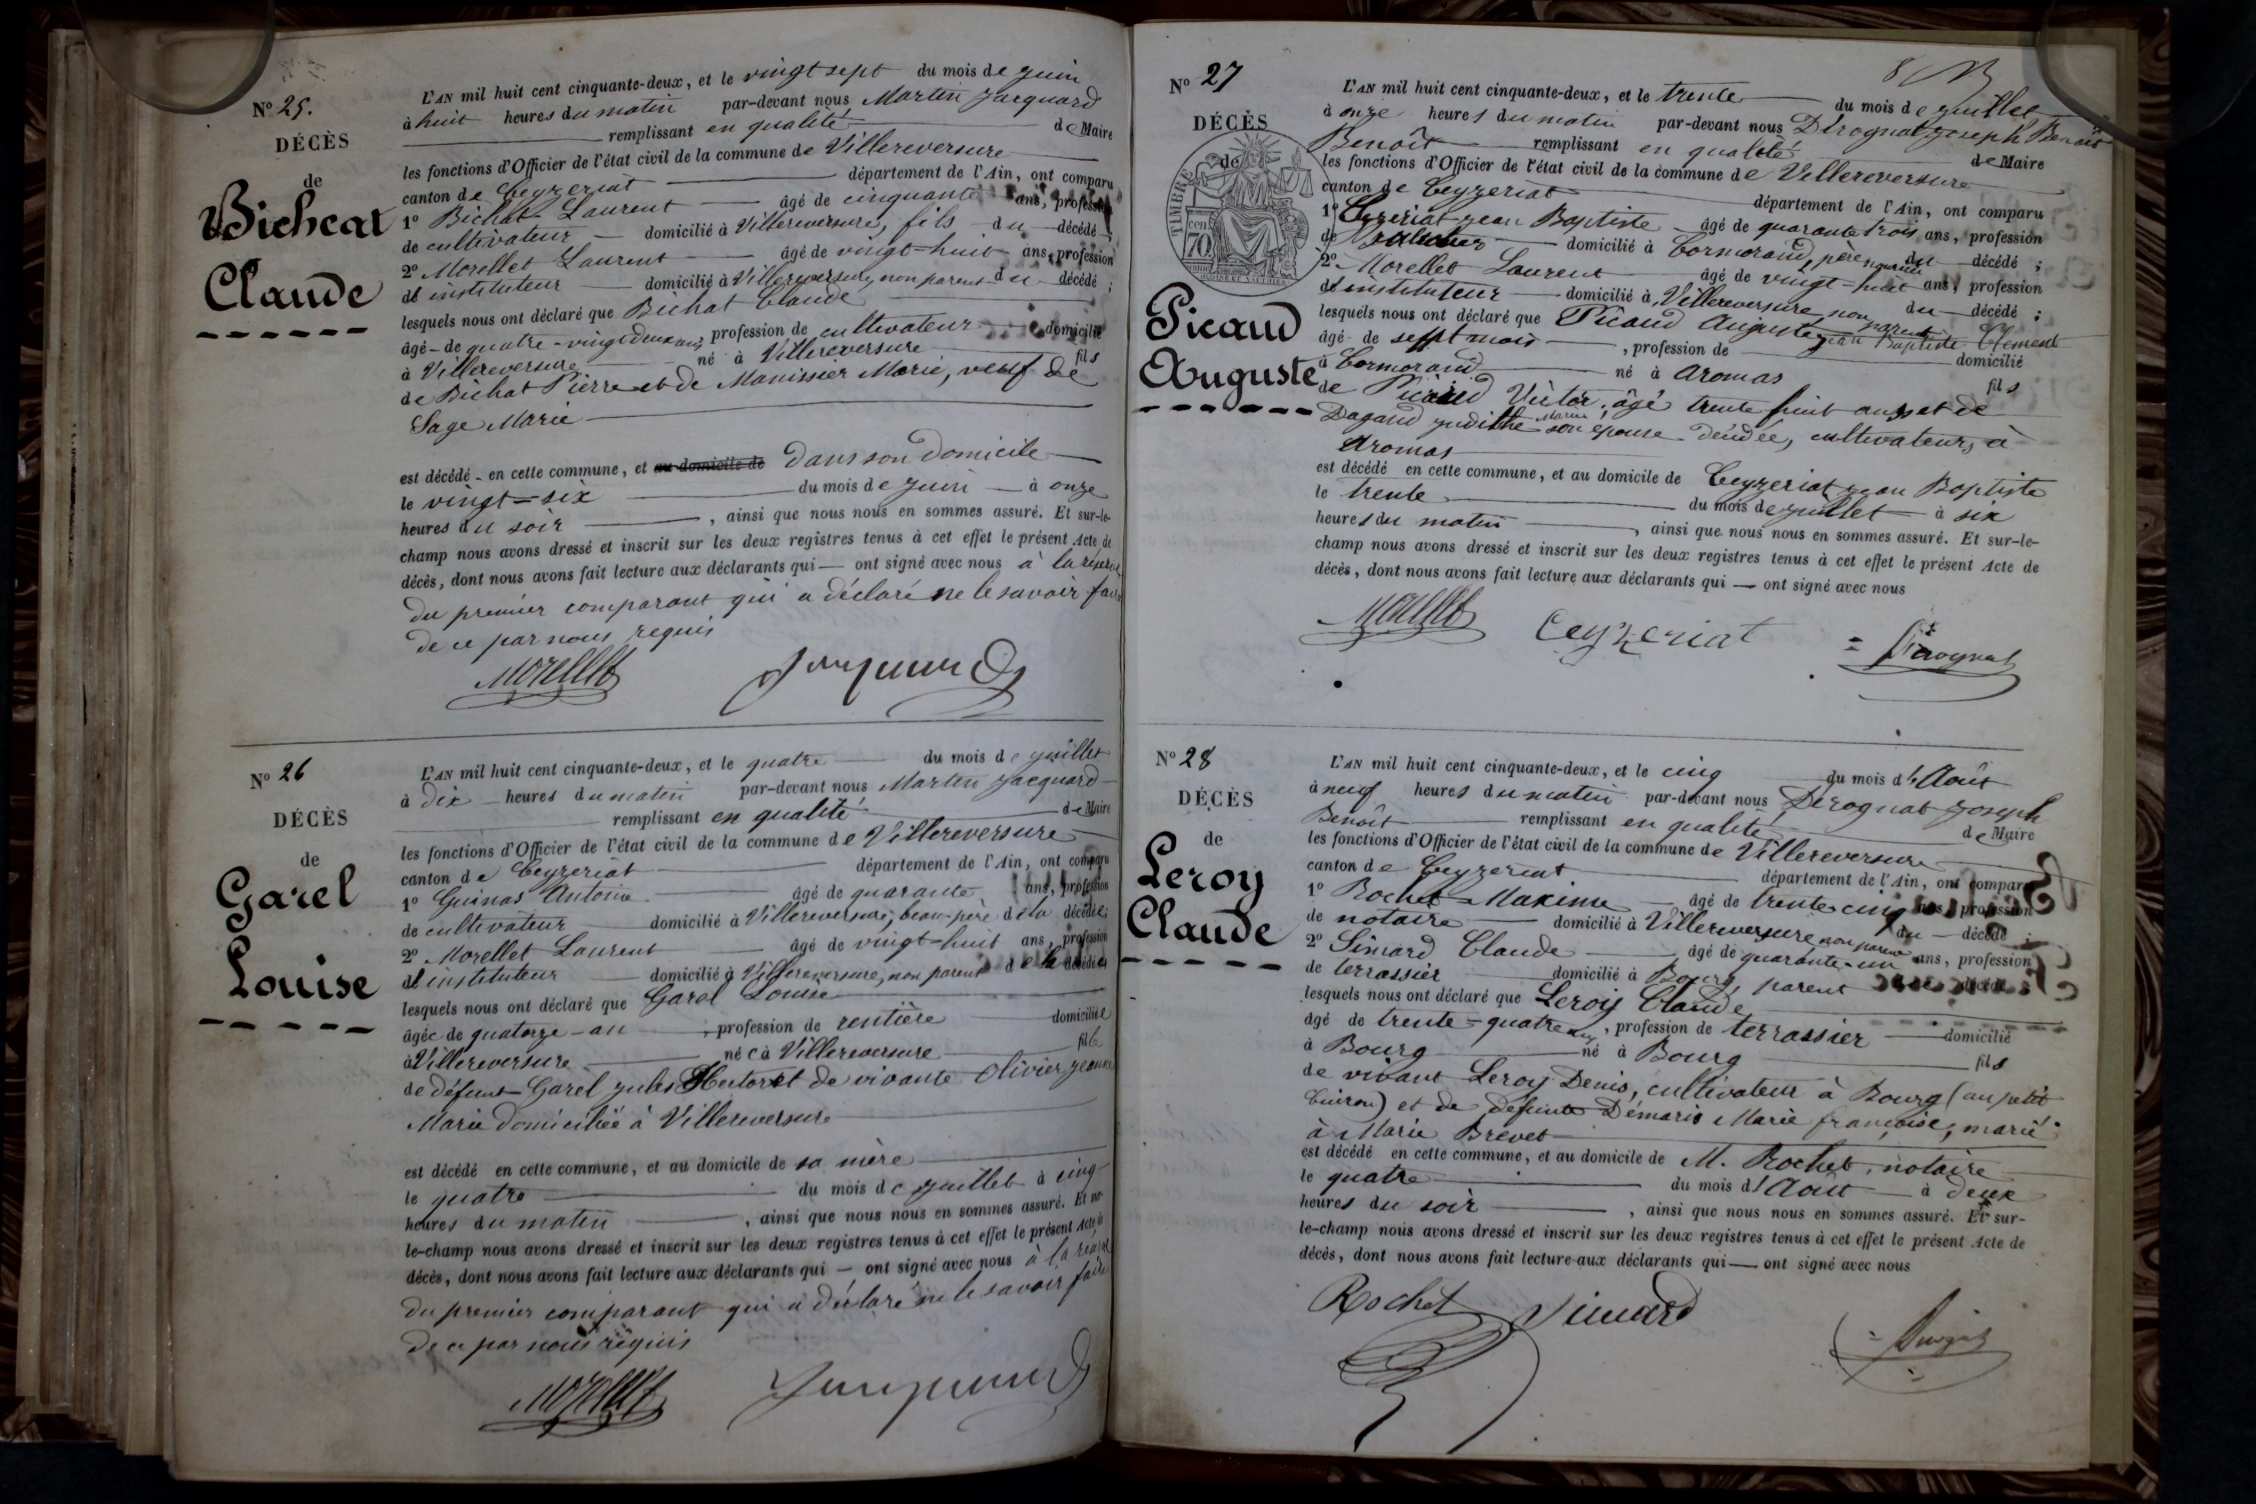 N° 25.
DÉCÈS
de
Bichcat
Claude
L'AN mil huit cent cinquante-deux, et le vingt sept du mois de juin
à huit heures du matin par-devant nous Martin Jacquard
remplissant en qualité de Maire
les fonctions d'Officier de l'état civil de la commune de Villereversure
canton de Ceyzeriat département de l'Ain, ont comparu
1° Bichat Laurent âgé de cinquante ans, profession
de cultivateur domicilié à Villereversure, fils du décédé ;
2° Morellet Laurent âgé de vingt-huit ans, profession
d'instituteur domicilié à Villereversure, non parent du décédé ;
lesquels nous ont déclaré que Bichat Claude
âgé de quatre-vingt deux ans, profession de cultivateur domicilié
à Villereversure né à Villereversure fils
de Bichat Pierre et de Manissier Marie, veuf de
Sage Marie
est décédé en cette commune, et au domicile de dans son domicile
le vingt-six du mois de juin à onze
heures du soir , ainsi que nous nous en sommes assuré. Et sur-le-
champ nous avons dressé et inscrit sur les deux registres tenus à cet effet le présent Acte de
décès, dont nous avons fait lecture aux déclarants qui ont signé avec nous à la réserve
du premier comparant qui a déclaré ne le savoir faire
de ce par nous requis
Morellet Jacquard
N° 26
DÉCÈS
de
Garel
Louise
L'AN mil huit cent cinquante-deux, et le quatre du mois de juillet
à dix heures du matin par-devant nous Martin Jacquard
remplissant en qualité de Maire
les fonctions d'Officier de l'état civil de la commune de Villereversure
canton de Ceyzeriat département de l'Ain, ont comparu
1° Guinas Antoine âgé de quarante ans, profession
de cultivateur domicilié à Villereversure, beau-père de la décédée ;
2° Morellet Laurent âgé de vingt-huit ans, profession
d'instituteur domicilié à Villereversure, non parent de la décédée
lesquels nous ont déclaré que Garel Louise
âgée de quatorze-an , profession de rentière domiciliée
à Villereversure née à Villereversure fille
de défunt Garel Jules Hector et de vivante Olivier Jeanne
Marie domiciliée à Villereversure
est décédé en cette commune, et au domicile de sa mère
le quatre du mois de juillet à cinq
heures du matin , ainsi que nous nous en sommes assuré. Et sur-
le-champ nous avons dressé et inscrit sur les deux registres tenus à cet effet le présent Acte de
décès, dont nous avons fait lecture aux déclarants qui ont signé avec nous à la réserve
du premier comparant qui a déclaré ne le savoir faire
de ce par nous requis
Morellet Jacquard
8
N° 27
DÉCÈS
de
TIMBRE
70
Picaud
Auguste
L'AN mil huit cent cinquante-deux, et le trente du mois de juillet
à onze heures du matin par-devant nous Dérognat Joseph Benoît
Benoît remplissant en qualité de Maire
les fonctions d'Officier de l'état civil de la commune de Villereversure
canton de Ceyzeriat département de l'Ain, ont comparu
1° Ceyzeriat Jean Baptiste âgé de quarante trois ans, profession
de domicilié à Cormorand, père nourricier du décédé ;
2° Morellet Laurent âgé de vingt-huit ans, profession
d'instituteur domicilié à Villereversure non parent du décédé ;
lesquels nous ont déclaré que Picaud Auguste Jean Baptiste Clément
âgé de sept mois , profession de domicilié
à Cormorand né à Aromas fils
de Picaud Victor, âgé trente huit ans, et de
Dagand Judithe Marie son épouse décédée, cultivateurs à
Aromas
est décédé en cette commune, et au domicile de Ceyzeriat Jean Baptiste
le trente du mois de juillet à six
heures du matin , ainsi que nous nous en sommes assuré. Et sur-le-
champ nous avons dressé et inscrit sur les deux registres tenus à cet effet le présent Acte de
décès, dont nous avons fait lecture aux déclarants qui ont signé avec nous
Morellet Ceyzeriat Dérognat
N° 28
DÉCÈS
de
Leroy
Claude
L'AN mil huit cent cinquante-deux, et le cinq du mois d'Août
à neuf heures du matin par-devant nous Dérognat Joseph
Benoît remplissant en qualité de Maire
les fonctions d'Officier de l'état civil de la commune de Villereversure
canton de Ceyzeriat département de l'Ain, ont comparu
1° Rochet Maxime âgé de trente cinq ans, profession
de notaire domicilié à Villereversure non parent du décédé ;
2° Simard Claude âgé de quarante-un ans, profession
de terrassier domicilié à Bourg, parent décédé
lesquels nous ont déclaré que Leroy Claude
âgé de trente-quatre ans, profession de terrassier domicilié
à Bourg né à Bourg fils
de vivant Leroy Denis, cultivateur à Bourg (au petit
Cuiron) et de défunte Démaris Marie françoise, marié
à Marie Brevet
est décédé en cette commune, et au domicile de M. Rochet, notaire
le quatre du mois d'Août à deux
heures du soir , ainsi que nous nous en sommes assuré. Et sur-
le-champ nous avons dressé et inscrit sur les deux registres tenus à cet effet le présent Acte de
décès, dont nous avons fait lecture aux déclarants qui ont signé avec nous
Rochet Simard